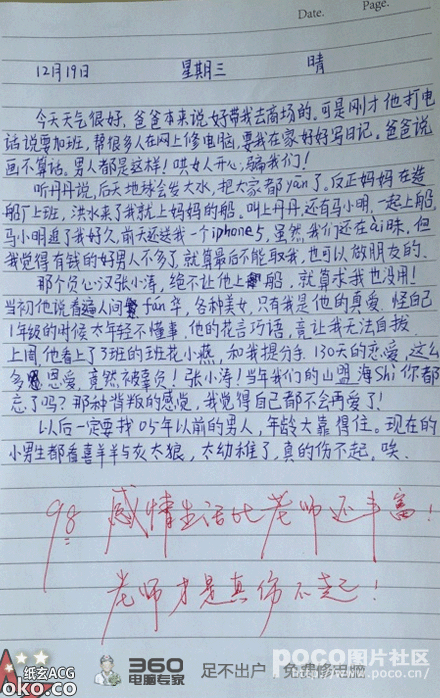 Date.
Page.
12月19日 星期三 晴
今天天气很好，爸爸本来说好带我去商场的。可是刚才他打电
话说要加班，帮很多人在网上修电脑，要我在家好好写日记。爸爸说
画不算话。男人都是这样！哄女人开心，骗我们！
听丹丹说，后天地球会发大水，把大家都yān了。反正妈妈在造
船厂上班，洪水来了我就上妈妈的船。叫上丹丹，还有马小明，一起上船。
马小明追了我好久，前天还送我一个iphone5，虽然我们还在ài昧，但
我觉得有钱的好男人不多了，就算最后不能取我，也可以做朋友的。
那个负心汉张小涛，绝不让他上船，就算求我也没用！
当初他说看遍人间fán华，各种美女，只有我是他的真爱，怪自己
1年级的时候太年轻不懂事，他的花言巧语，竟让我无法自拔。
上周他看上了3班的班花小燕，和我提分手，130天的恋爱，这么
多恩爱，竟然被辜负！张小涛！当年我们的山盟海Shì你都
忘了吗？那种背叛的感觉，我觉得自己都不会再爱了！
以后一定要找05年以前的男人，年龄大靠得住。现在的
小男生都看喜羊羊与灰太狼，太幼稚了，真的伤不起，唉。
98 感情生活比老师还丰富！
老师才是真伤不起！
纸玄ACG
oko.co
360
电脑专家
足不出户 免费修电脑
POCO图片社区